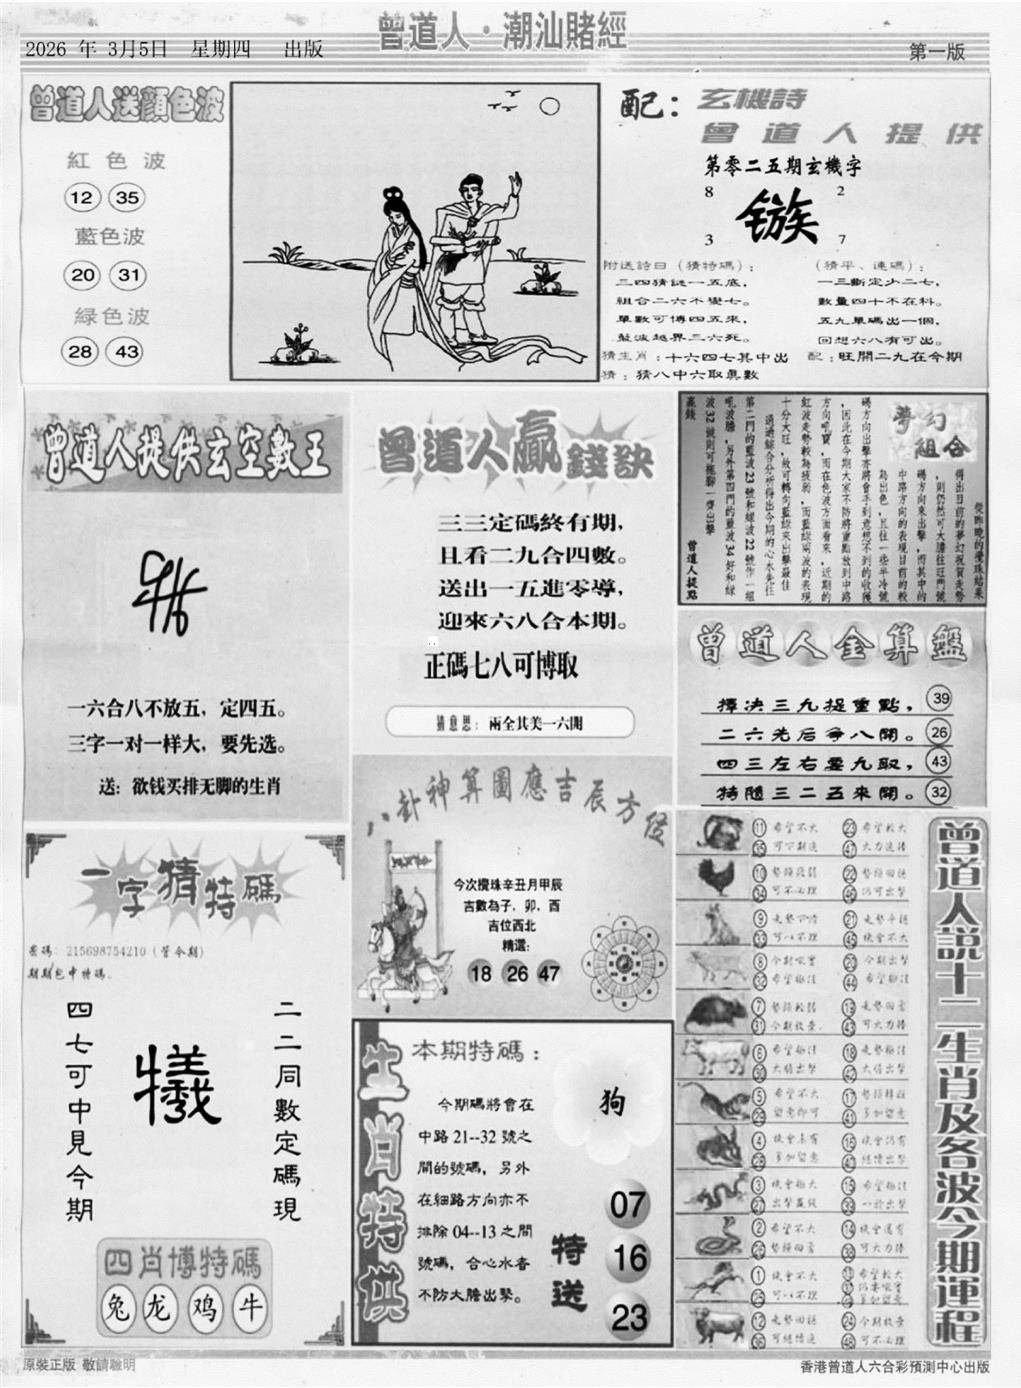 曾道人·潮汕賭經
2026 年 3月5日 星期四 出版
第一版
曾道人送顔色波
紅色波
12 35
藍色波
20 31
綠色波
28 43
配：玄機詩
曾道人提供
第零二五期玄機字
8 2
镞
3 7
附送詩曰（猜特碼）：
三四猜謎一五底，
組合二六不變七。
單數可博四五來，
藍波越界三六死。
猜生肖：十六四七其中出
猜：猜八中六取真數
（猜平、連碼）：
一三斷定少二七，
數量四十不在料。
五九單碼出一個，
回想六八有可出。
配：旺開二九在今期
曾道人提供玄空數王
一六合八不放五，定四五。
三字一对一样大，要先选。
送：欲钱买排无脚的生肖
曾道人贏錢訣
三三定碼終有期，
且看二九合四數。
送出一五進零導，
迎來六八合本期。
正碼七八可博取
猜意思：兩全其美一六開
夢幻組合
從昨晚的攪珠結果
得出目前的夢幻祝賀走勢
，則仍然可大膽往旺門號
碼方向來出擊，而其中的
中路方向的表現目前的較
為出色，且往一些半冷號
碼方向出擊亦將會手到意想不到的收獲
，因此在今期大家不防將重點放到中路
方向吼寶，而在色波方面看來，近期的
紅波走勢較為疲弱，而藍綠兩波的表現
十分大旺，故可轉向藍綠來出擊最佳
通過綜合分析得出今期的心水先往
第二門的藍波23號和綠波22號作一組
吼波膽，另外第四門的藍波34好和綠
波32號則可拖腳一齊出擊
贏錢
曾道人提點
曾道人金算盤
擇决三九提重點， 39
二六先后爭八開。 26
四三左右要九取， 43
特隨三二五來開。 32
八卦神算圖應吉辰方位
今次攪珠辛丑月甲辰
吉數為子、卯、酉
吉位西北
精選：
18 26 47
一字猜特碼
密碼：215698754210（管令期）
期期包中特碼.
四七可中見今期
犧
二二同數定碼現
四肖博特碼
兔 龙 鸡 牛
生肖特供
本期特碼：
今期碼將會在
中路21--32號之
間的號碼，另外
在細路方向亦不
排除04--13之間
號碼，合心水者
不防大膽出擊。
狗
特送
07
16
23
曾道人説十二生肖及各波今期運程
11 希望不大 23 希望較大
35 可下制這 47 大力追捧
10 勢頭疲弱 22 勢頭回穩
34 可不必理 46 仍可出擊
9 走勢下滑 21 走勢平穩
33 可以不理 45 機會不大
8 今期吼實 20 今期出擊
32 希望極佳 44 希望極佳
7 勢頭較弱 19 走勢回喜
31 今期收量 43 可大力捧
6 希望極佳 18 走勢極佳
30 大膽出擊 42 大膽出擊
5 希望不大 17 勢頭轉旺
29 留意即可 41 多加留意
4 機會未有 16 機會仍有
28 多加留意 40 繼續出擊
3 機會極大 15 希望極佳
27 出擊贏錢 39 一於出擊
2 希望不大 14 機會還有
26 勢頭回喜 38 可大力捧
1 機會不大 13 希望較大
25 可以不理
12 走勢回穩 24 今期收量
36 可繼續追 48 可不必理
原裝正版 敬請聰明
香港曾道人六合彩預測中心出版